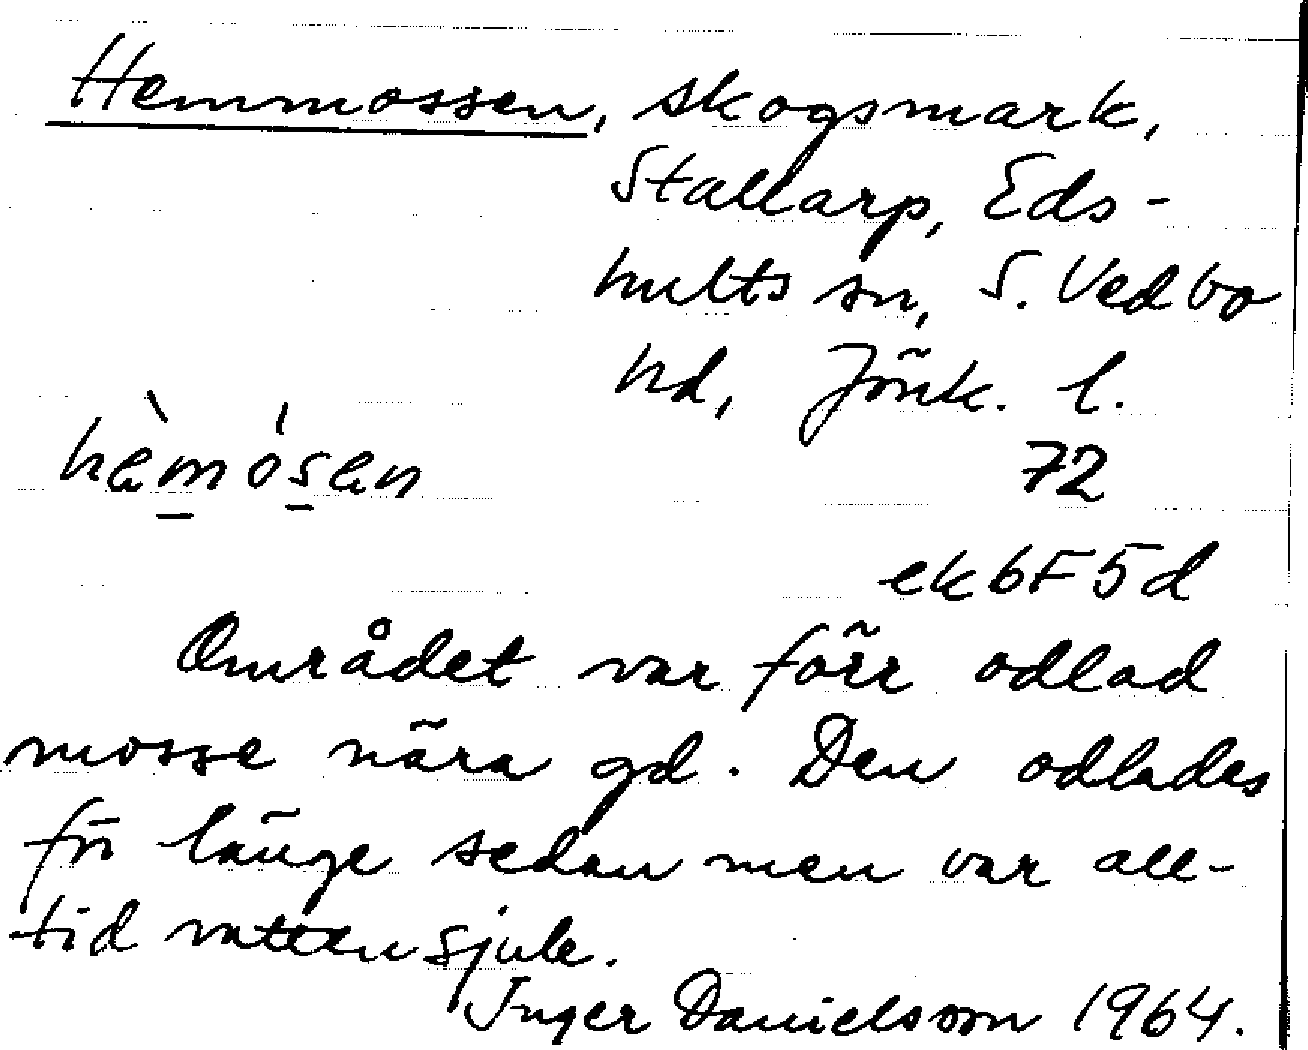 Hemmossen, skogsmark,
Stallarp, Eds-
hults sn, S. Vedbo
hd, Jönk. l.
hè̀mósen 72
ek 6F5d
Området var förr odlad
mosse nära gd. Den odlades
för länge sedan men var all-
tid vattensjuk.
Inger Danielsson 1964.